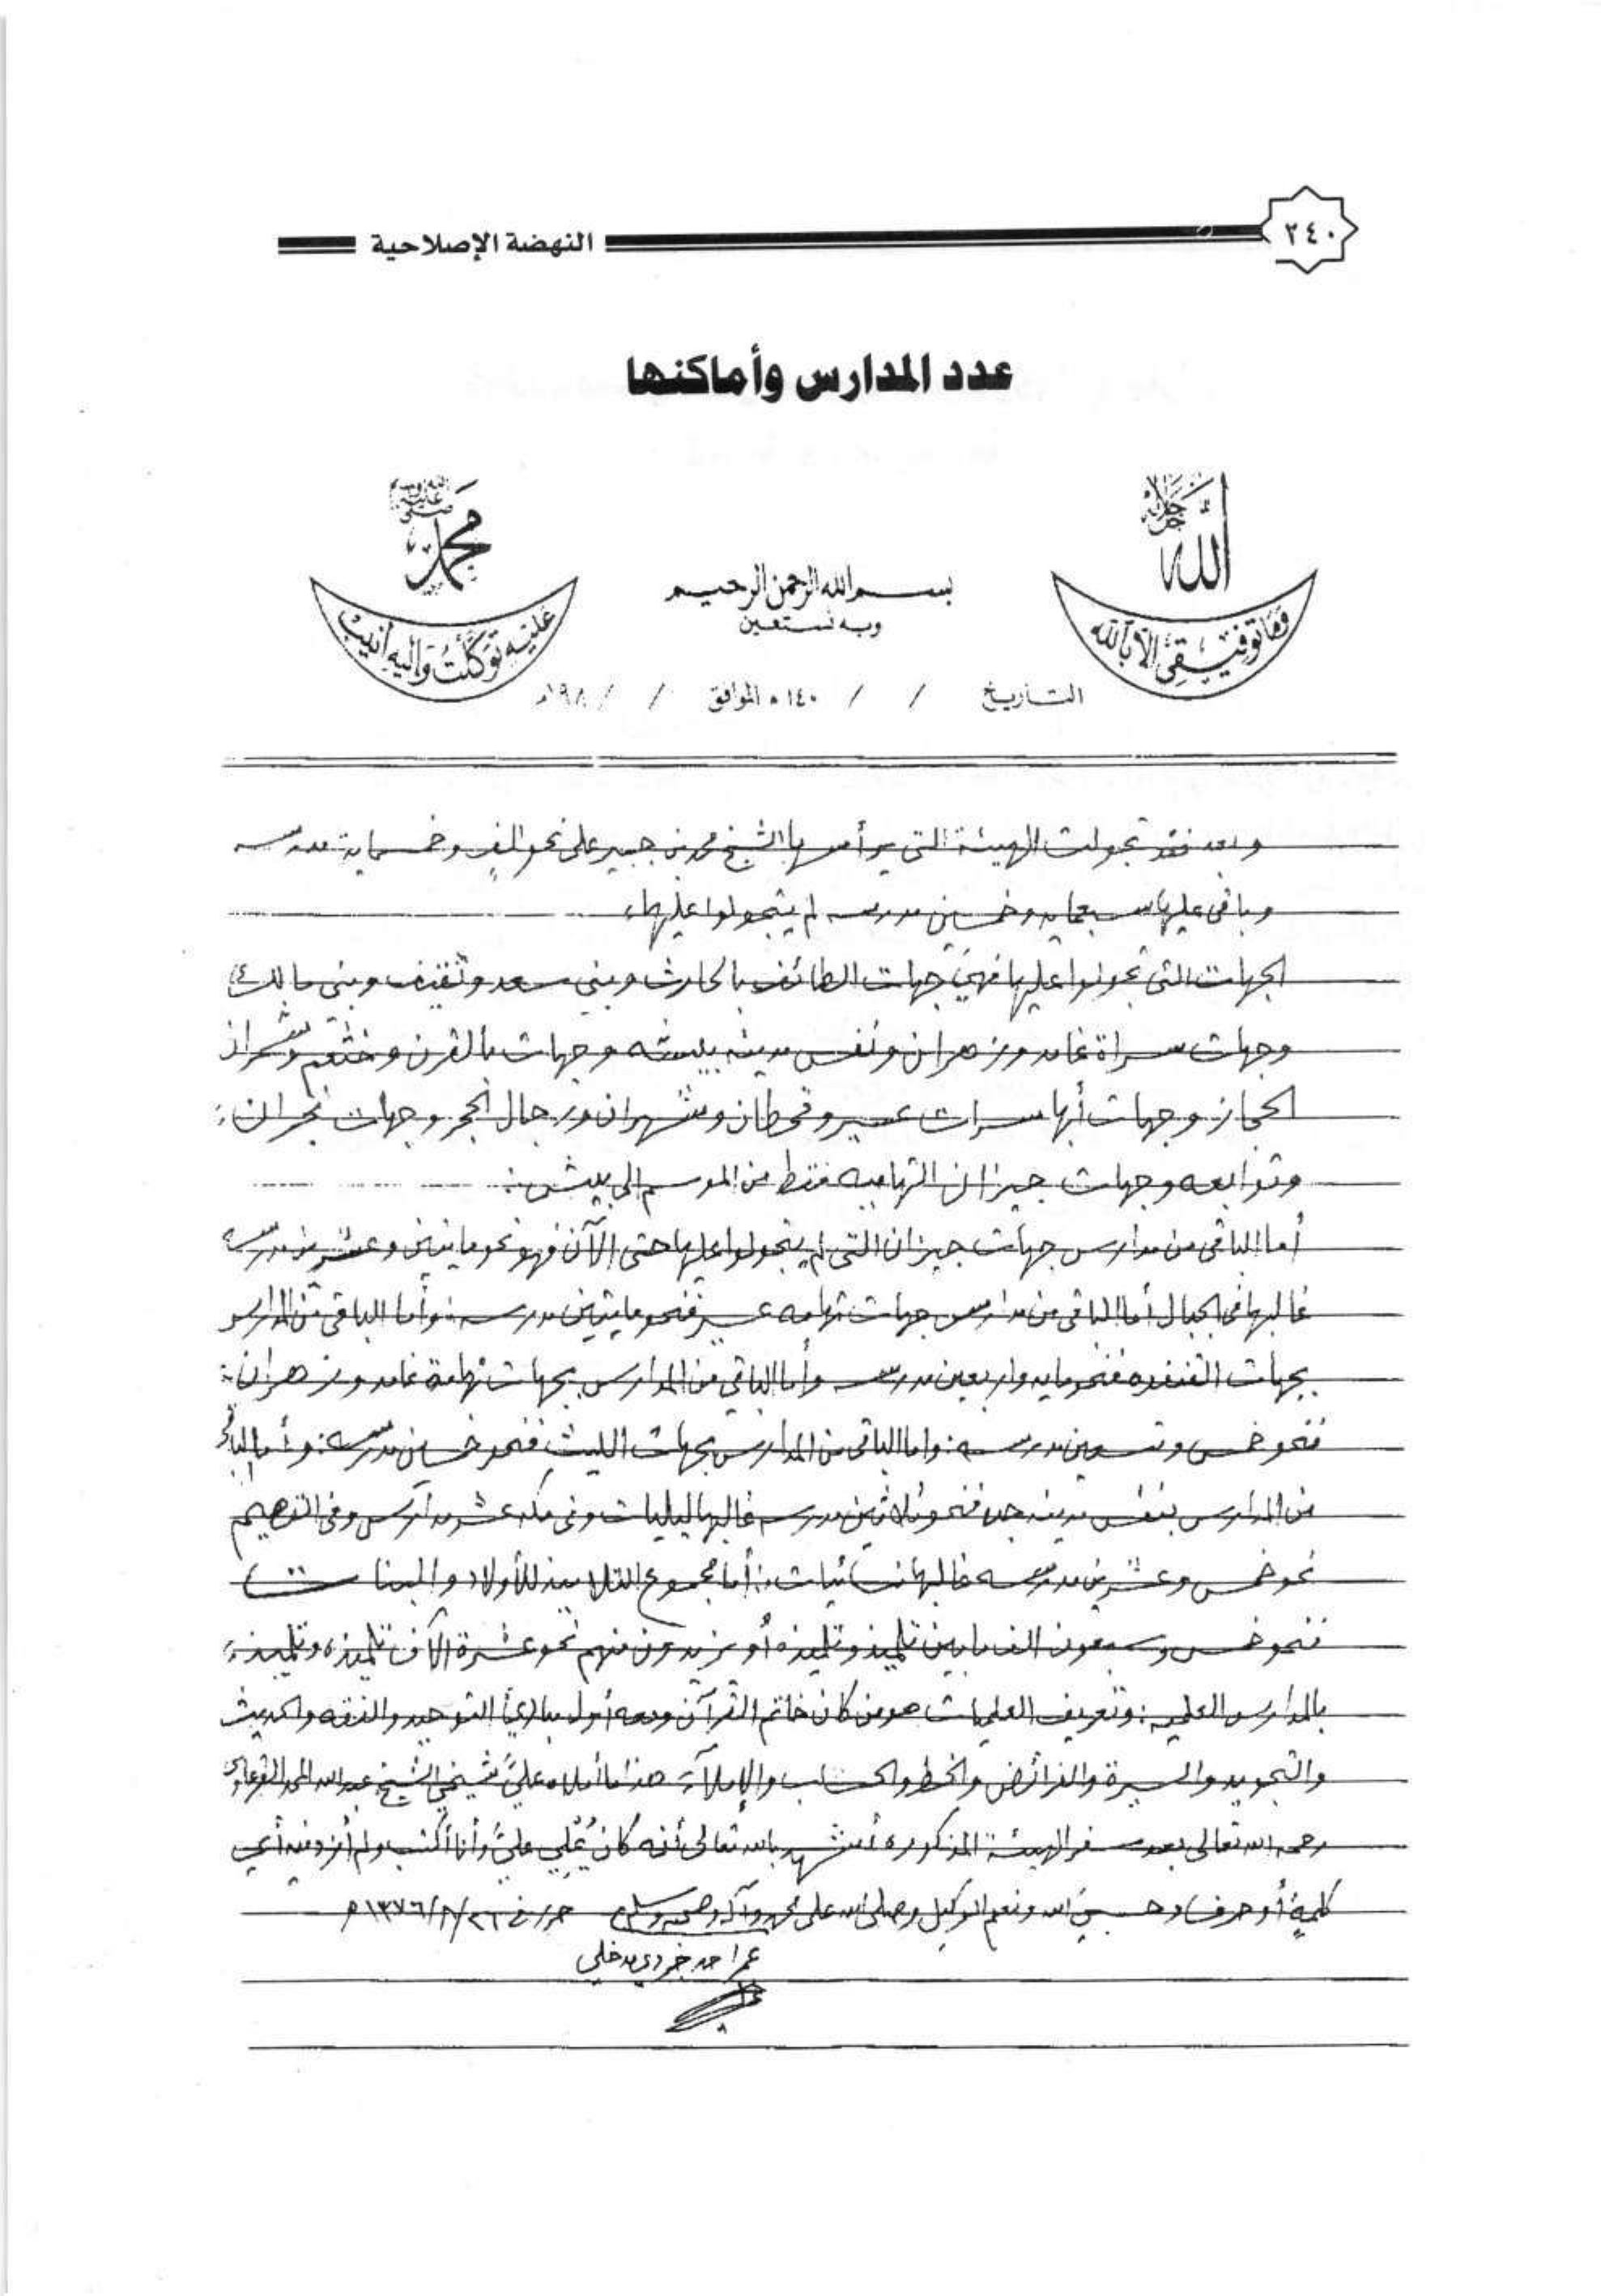 ٢٤٠
النهضة الإصلاحية
عدد المدارس وأماكنها
الله جل جلاله
محمد صلى الله عليه وسلم
وما توفيقي إلا بالله
عليه توكلت وإليه أنيب
بسم الله الرحمن الرحيم
وبه نستعين
التاريخ / / ١٤٠ه الموافق / / ١٩٨م
وبعد فقد تجولت الهيئة التي يرأسها الشيخ محمد بن جبير على نحو ألف وخمسماية مدرسه
وباقي عليها سبعمايه وخمسين مدرسه لم يتجولوا عليها،
الجهات التي تجولوا عليها فهي جهات الطائف بالحارث وبني سعد وثقيف وبني مالك
وجهات سراة غامد وزهران ونفس مدينه بيشه وجهات بالقرن وخثعم وشمران
الحجاز وجهات أبها سرات عسير وقحطان وشهران ورجال الحجر وجهات نجران:
وتوابعه وجهات جيزان التهاميه فقط من الموسم إلى بيش:
أما الباقي من مدارس جهات جيزان التي لم يتجولوا عليها حتى الآن فهو نحو مايتين وعشرين مدرسه
غالبها في الجبال أما الباقي من مدارس جهات تهامه عسير فنحو مايتين مدرسه: وأما الباقي من المدارس
بجهات القنفده فنحو مايه واربعين مدرسه وأما الباقي من المدارس بجهات تهامة غامد وزهران:
فنحو خمس وتسعين مدرسه: واما الباقي من المدارس بجهات الليث فنحو خمسين مدرسه: وأما الباقي
من المدارس بنفس مدينه جده فنحو ثلاثين مدرسه غالبها ليليات وفي مكه عشر مدارس وفي القصيم
نحو خمس وعشرين مدرسه غالبها نسائيات: أما مجموع التلاميذ للأولاد والبنات)
فنحو خمس وسبعون الف مابين تلميذ وتلميذه أو يزيدون منهم نحو عشرة الآف تلميذه وتلميذ،
بالمدارس العلميه: وتعريف العلميات هو من كان خاتم القرآن ومعه أول مبادئ التوحيد والفقه والحديث
والتجويد والسيرة والفرائض والخط والحساب والإملاء هذا ما أملاه عليَّ شيخي الشيخ عبدالله المحمد القرعاوي
رحمه الله تعالى بعد سفر الهيئة المذكوره أشهد بالله تعالى أنه كان يُملي عليَّ وأنا أكتب ولم أزد فيه أي
كلمةٍ أو حرف وحسبي الله ونعم الوكيل وصلى الله على محمد وآله وصحبه وسلم حرر في ٢٦/٨/١٣٧٦ه
عمر احمد جردي مدخلي